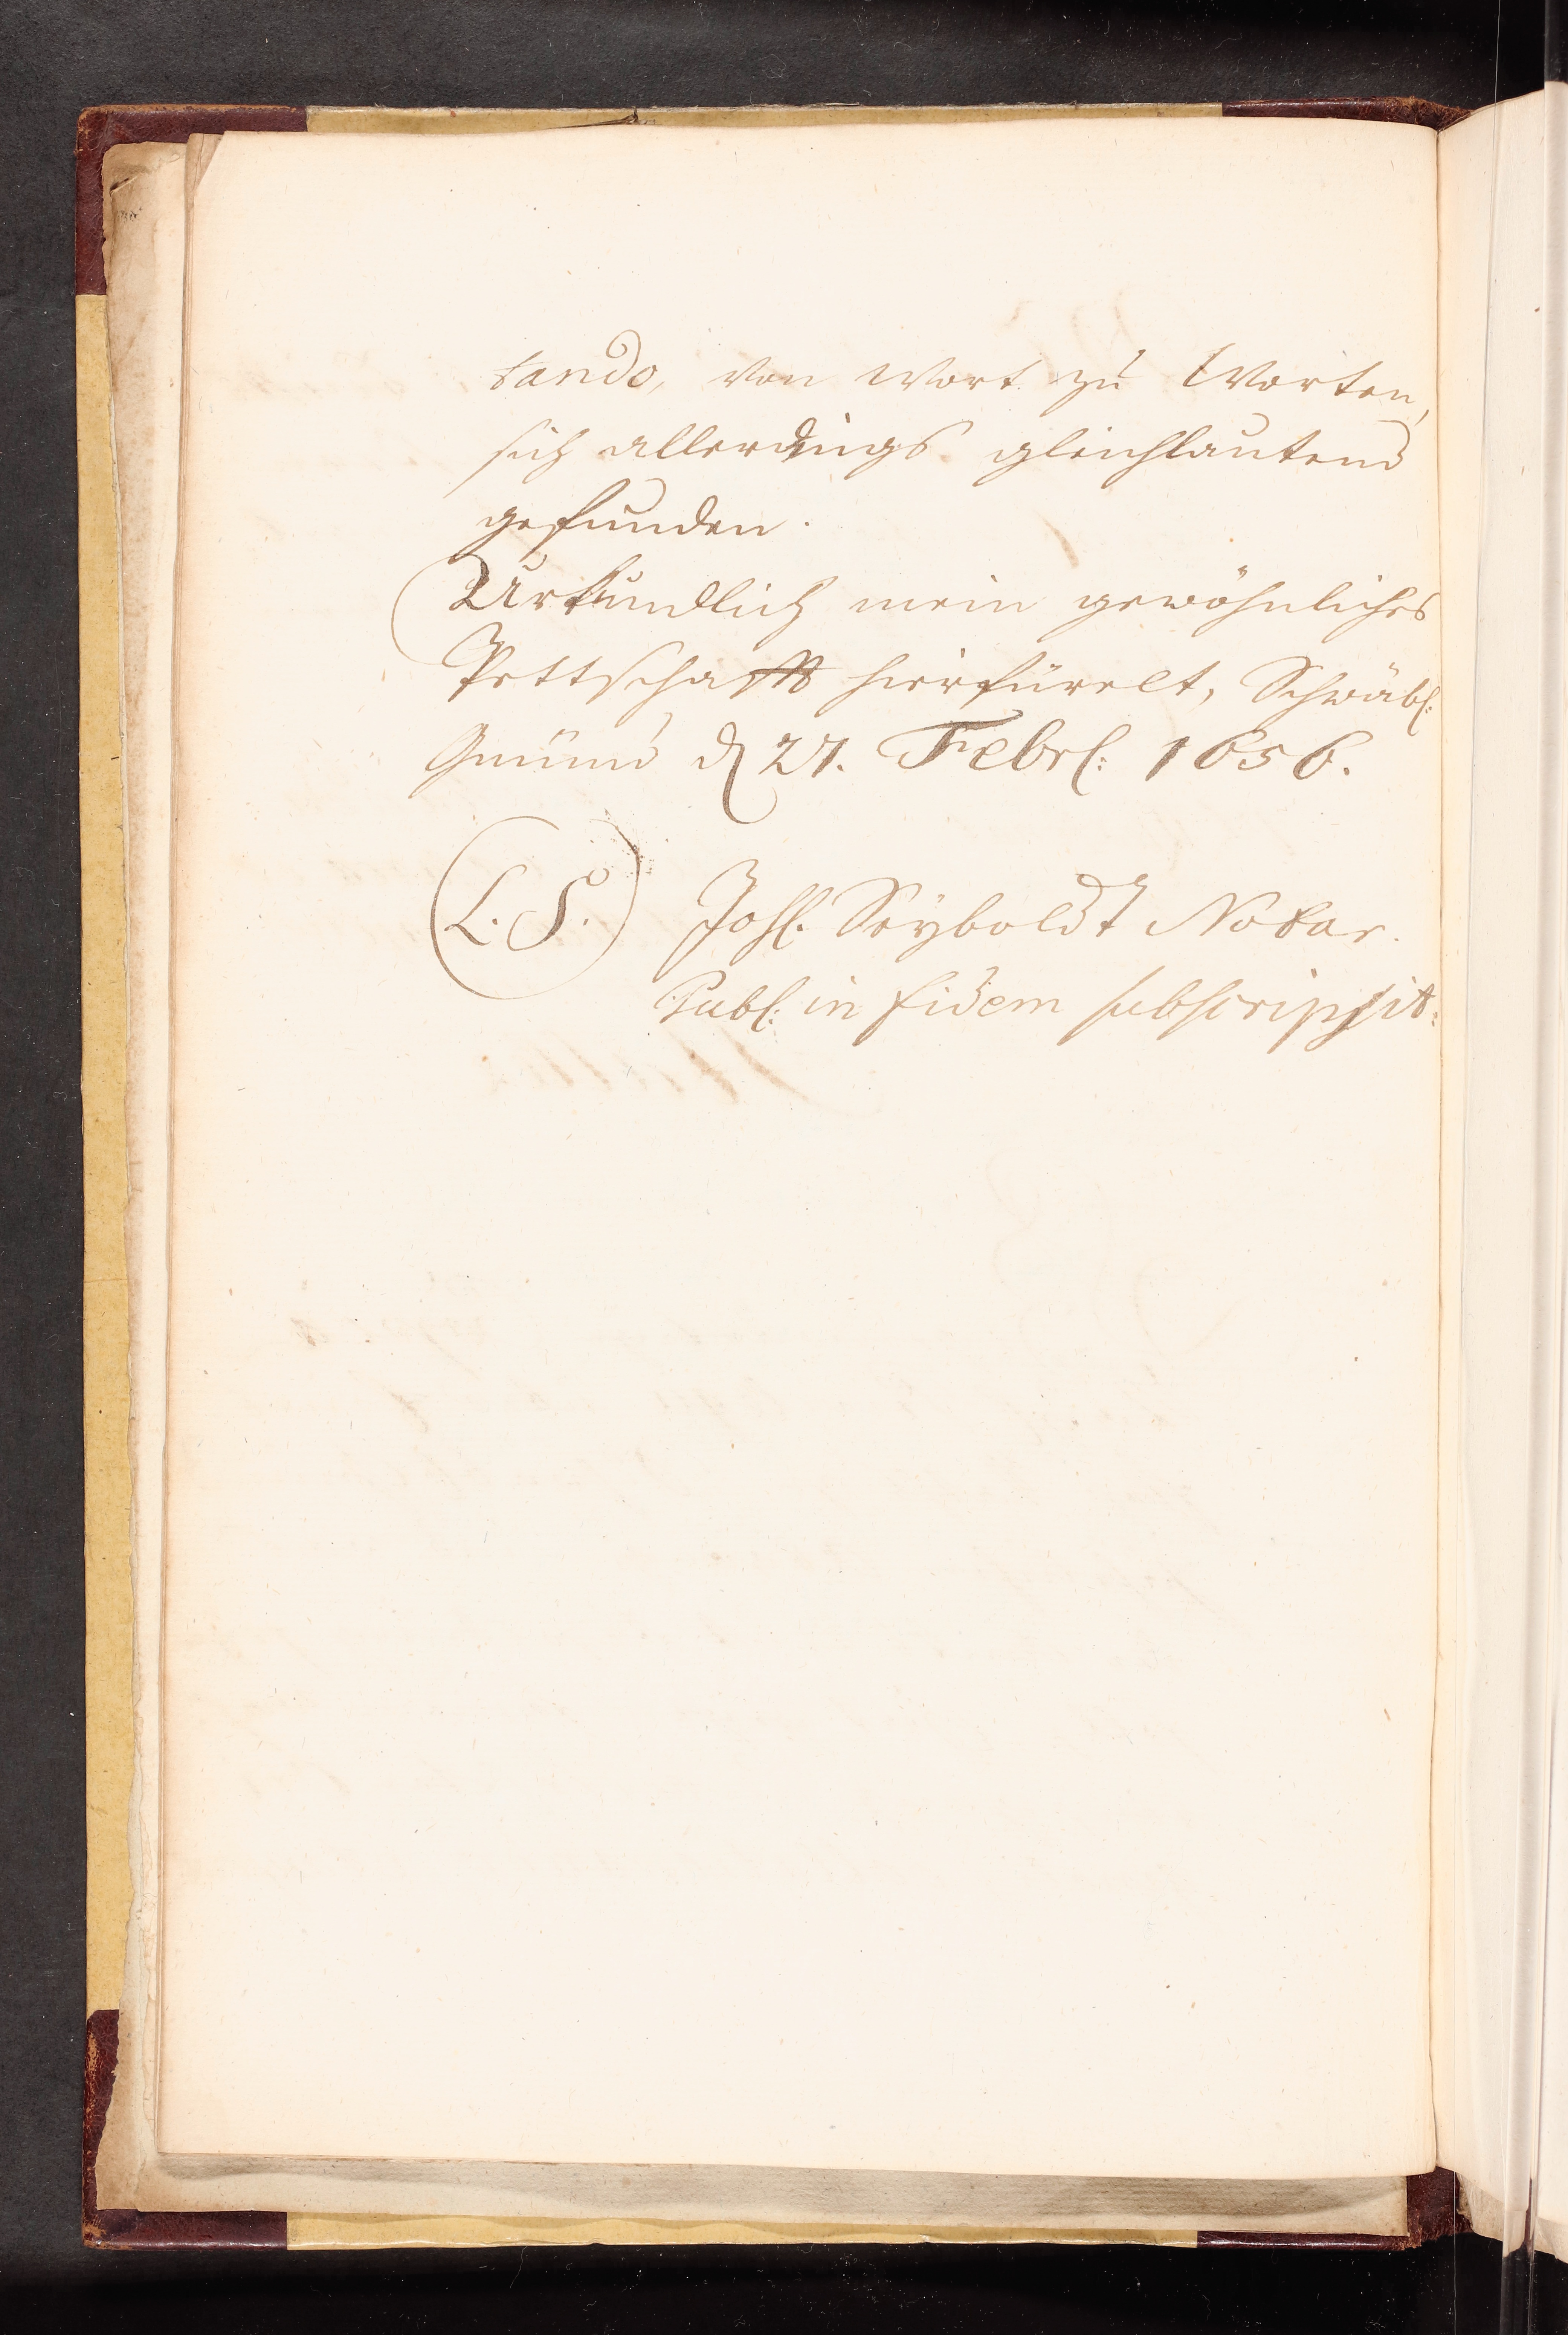 tando, von Wort zu Worten,
sich allerdings gleichlautend
gefunden.
Urkundlich mein gewöhnliches
Pettschafft hierfür, Schwäbl:
Gmünd d 27. Febrl: 1656.
(L. S.) Johl. Seyboldt Notar.
Publ: in fidem subscripsit.